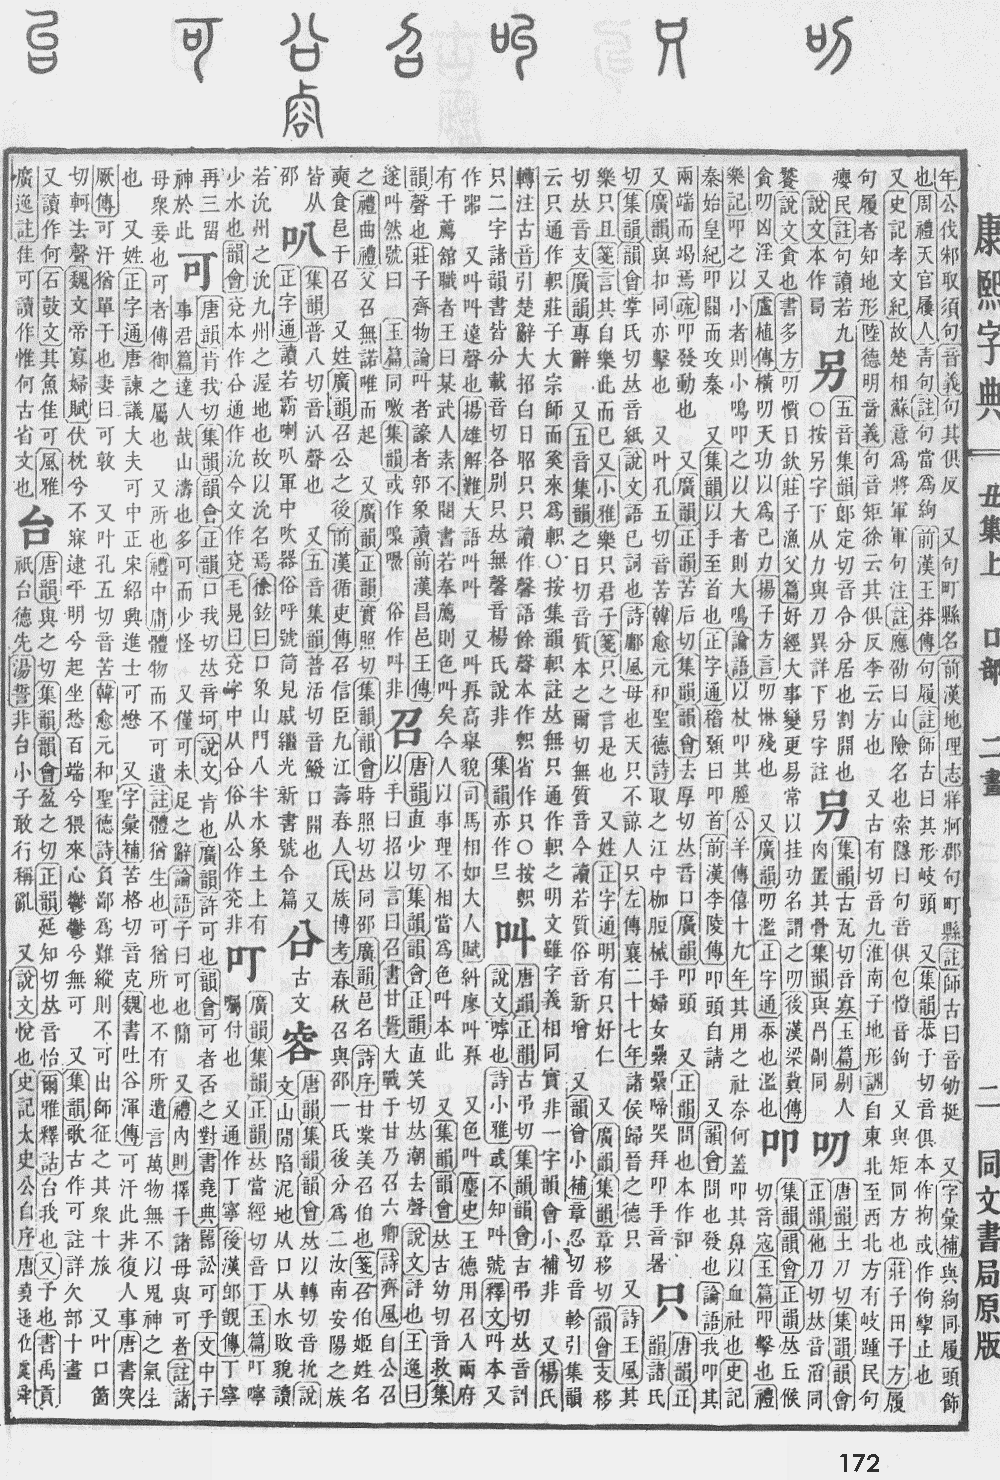 康熙字典 丑集上 口部 二畫 二 同文書局原版
年公伐邾取須句音義句其俱反 又句町縣名前漢地理志牂牁郡句町縣註師古曰音劬挺 又字彙補與絇同履頭飾
也周禮天官屨人靑句註句當爲絇 前漢王莽傳句履註師古曰其形岐頭 又集韻恭于切音俱本作拘或作佝拏止也
又史記孝文紀故楚相蘇意爲將軍軍句注註應劭曰山險名也索隱曰句音俱包愷音鉤 又與矩同方也莊子田子方履
句履者知地形陸德明音義句音矩徐云其俱反李云方也 又古有切音九淮南子地形訓自東北至西北方有岐踵民句
癭民註句讀若九 另 五音集韻郎定切音令分居也割開也 叧 集韻古瓦切音寡玉篇剔人 叨 唐韻土刀切集韻韻會
說文本作局 ○按另字下从力與刀異詳下叧字註 肉置其骨集韻與冎剮同 正韻他刀切𠀤音滔同
饕說文貪也書多方叨懫日欽莊子漁父篇好經大事變更易常以挂功名謂之叨後漢梁冀傳 叩 集韻韻會正韻𠀤丘候
貪叨凶淫 又盧植傳橫叨天功以爲己力揚子方言叨惏殘也 又廣韻叨濫正字通忝也濫也 切音寇玉篇叩擊也禮
樂記叩之以小者則小鳴叩之以大者則大鳴論語以杖叩其脛公羊傳僖十九年其用之社奈何蓋叩其鼻以血社也史記
秦始皇紀叩關而攻秦 又集韻以手至首也正字通稽顙曰叩首前漢李陵傳叩頭自請 又韻會問也發也論語我叩其
兩端而竭焉疏叩發動也 又廣韻正韻苦后切集韻韻會去厚切𠀤音口廣韻叩頭 又正韻問也本作訆 只 唐韻正
又廣韻與扣同亦擊也 又叶孔五切音苦韓愈元和聖德詩取之江中枷脰械手婦女纍纍啼哭拜叩手音暑 韻諸氏
切集韻韻會掌氏切𠀤音紙說文語已詞也詩鄘風母也天只不諒人只左傳襄二十七年諸侯歸晉之德只 又詩王風其
樂只且箋言其自樂此而已又小雅樂只君子箋只之言是也 又姓正字通明有只好仁 又廣韻集韻章移切韻會支移
切𠀤音支廣韻專辭 又五音集韻之日切音質本之爾切無質音今讀若質俗音新增 又韻會小補章忍切音軫引集韻
云只通作軹莊子大宗師而奚來爲軹○按集韻軹註𠀤無只通作軹之明文雖字義相同實非一字韻會小補非 又楊氏
轉注古音引楚辭大招白日昭只只讀作聲語餘聲本作𣤗省作只○按𣤗 叫 唐韻正韻古弔切集韻韻會古弔切𠀤音訆
只二字諸韻書皆分載音切各別只𠀤無馨音楊氏說非 集韻亦作𠮧 說文嘑也詩小雅或不知叫號釋文叫本又
作嘂 又叫叫遠聲也揚雄解難大語叫叫 又叫奡高舉貌司馬相如大人賦紏廖叫奡 又色叫麈史王德用召入兩府
有千薦館職者王曰某武人素不閱書若奉薦則色叫矣今人以事理不相當爲色叫本此 又集韻韻會𠀤古幼切音救集
韻聲也莊子齊物論叫者譹者郭象讀前漢昌邑王傳 召 唐韻直少切集韻韻會正韻直笑切𠀤潮去聲說文評也王逸曰
遂叫然號曰 玉篇同噭集韻或作嘄嘂 俗作呌非 以手曰招以言曰召書甘誓大戰于甘乃召六卿詩齊風自公召
之禮曲禮父召無諾唯而起 又廣韻正韻實照切集韻韻會時照切𠀤同邵廣韻邑名詩序甘棠美召伯也箋召伯姬姓名
奭食邑于召 又姓廣韻召公之後前漢循吏傳召信臣九江壽春人氏族博考春秋召與邵一氏後分爲二汝南安陽之族
皆从邵 叭 集韻普八切音汃聲也 又五音集韻普活切音鏺口開也 又 㕣 古文 容 唐韻集韻韻會𠀤以轉切音抁說
正字通讀若霸喇叭軍中吹器俗呼號筒見戚繼光新書號令篇 文山閒陷泥地从口从水敗貌讀
若沇州之沇九州之渥地也故以沇名焉徐鉉曰口象山門八半水象土上有 叮 廣韻集韻正韻𠀤當經切音丁玉篇叮嚀
少水也韻會兗本作㕣通作沇今文作兗毛晃曰兗字中从㕣俗从公作兖非 囑付也 又通作丁寧後漢郞顗傳丁寧
再三留神於此 可 唐韻肯我切集韻韻會正韻口我切𠀤音坷說文肯也廣韻許可也韻會可者否之對書堯典嚚訟可乎文中子
事君篇達人哉山濤也多可而少怪 又僅可未足之辭論語子曰可也簡 又禮內則擇于諸母與可者註諸
母衆妾也可者傅御之屬也 又所也禮中庸體物而不可遺註體猶生也可猶所也不有所遺言萬物無不以鬼神之氣生
也 又姓正字通唐諫議大夫可中正宋紹興進士可懋 又字彙補苦格切音克魏書吐谷渾傳可汗此非復人事唐書突
厥傳可汗猶單于也妻曰可敦 又叶孔五切音苦韓愈元和聖德詩負鄙爲難縱則不可出師征之其衆十旅 又叶口箇
切軻去聲魏文帝寡婦賦伏枕兮不寐逮平明兮起坐愁百端兮猥來心鬱鬱兮無可 又集韻歌古作可註詳欠部十畫
又讀作何石鼓文其魚隹可風雅 台 唐韻與之切集韻韻會盈之切正韻延知切𠀤音怡爾雅釋詁台我也又予也書禹貢
廣逸註隹可讀作惟何古省文也 祇台德先湯誓非台小子敢行稱亂 又說文悅也史記太史公自序唐堯遜位虞舜
172